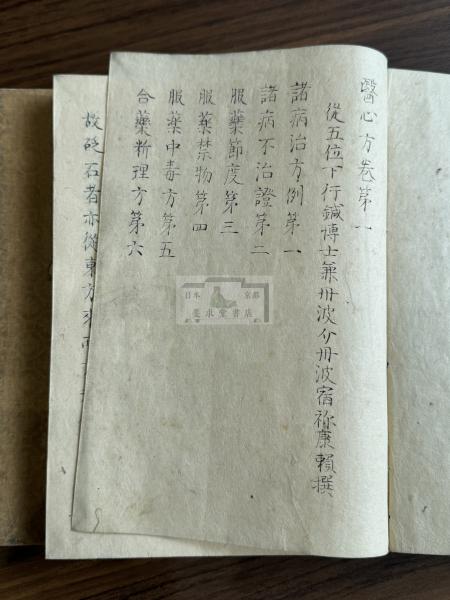 醫心方卷第一
從五位下行鍼博士兼丹波介丹波宿祢康頼撰
諸病治方例第一
諸病不治證第二
服藥節度第三
服藥禁物第四
服藥中毒方第五
合藥料理方第六
故砭石者亦從東方来
日本
京都
墨求堂書店